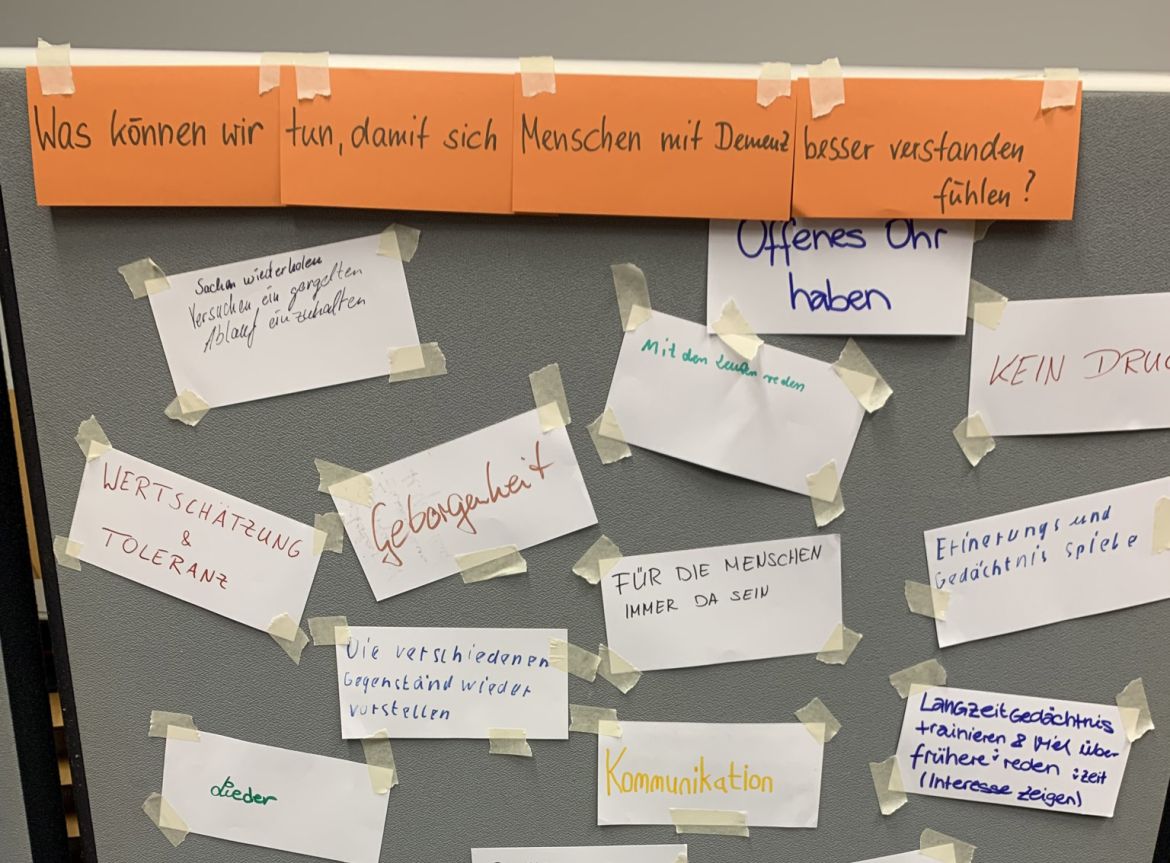 Was können wir tun, damit sich Menschen mit Demenz besser verstanden
fühlen?
Offenes Ohr
haben
Sachen wiederholen
Versuchen ein gergelten
Ablauf einzuhalten
Mit den Leuten reden
KEIN DRUC
WERTSCHÄTZUNG
&
TOLERANZ
Geborgenheit
FÜR DIE MENSCHEN
IMMER DA SEIN
Erinerungs und
Gedächtnis spiele
Die verschiedenen
Gegenständ wieder
vorstellen
Langzeitgedächtnis
trainieren & viel über
frühere: reden :zeit
(Interesse zeigen)
Lieder
Kommunikation